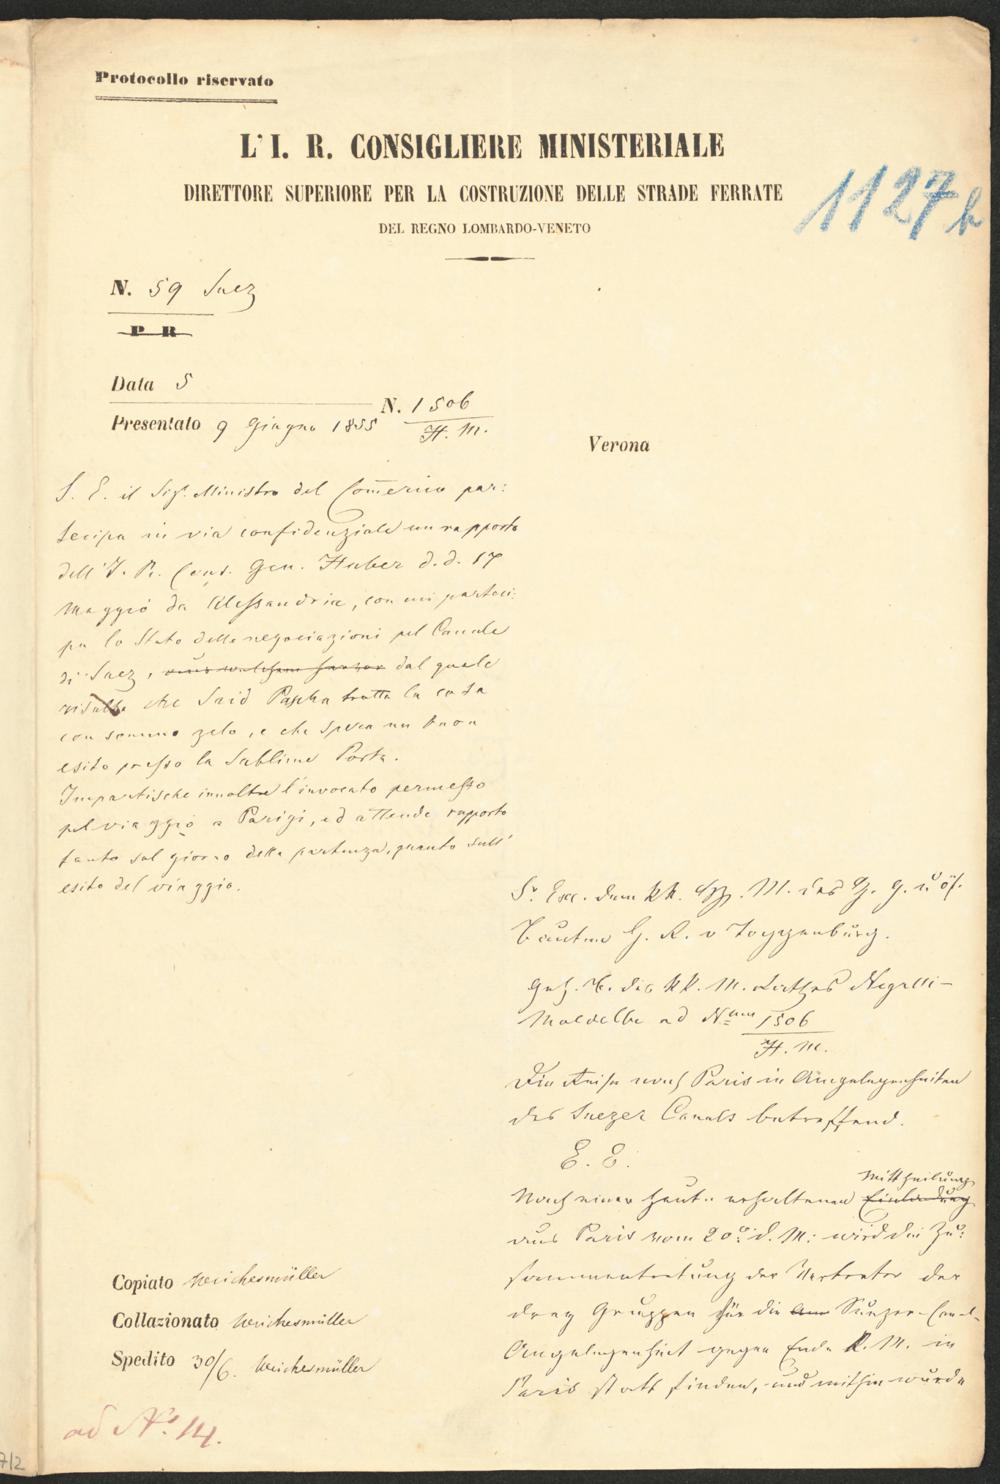 Protocollo riservato
L'I. R. CONSIGLIERE MINISTERIALE
DIRETTORE SUPERIORE PER LA COSTRUZIONE DELLE STRADE FERRATE
DEL REGNO LOMBARDO-VENETO
1127 b
N. 59 Suez
P R
Data 5
N. 1506
Presentato 9 Giugno 1855
H. M.
Verona
S. E. il Sigr. Ministro del Com̅ercio par:
tecipa in via confidenziale un rapporto
dell'I. R. Cons. Gen. Huber d. d. 17
Maggio da Alessandria, con cui parteci:
pa lo Stato delle negoziazioni pel Canale
di Suez, aus welchem hervor dal quale
risulta che Said Pascha tratta la cosa
con sommo zelo, e che spera un buon
esito presso la Sublime Porta.
Impartische innoltre l'invocato permesso
pel viaggio a Parigi, ed attende rapporto
tanto sul giorno della partenza, quanto sull'
esito del viaggio.
Sr. Exc. dem kk. M. des H. G. u öf.
Bauten H. R. v Toggenburg.
Geh. B. des kk. M. Rathes Negrelli-
Moldelbe ad Num 1506
H. M.
Die Reise nach Paris in Angelegenheiten
des Suezer Canals betreffend.
E. E.
Mittheilung
Nach einer heute erhaltenen Einladung
aus Paris vom 20. d. M: wird die Zu:
sammentretung der Vertreter der
drey Gruppen für die Suezer-Canal-
Angelegenheit gegen Ende k. M. in
Paris statt finden, und mithin wurde
Copiato Weichesmüller
Collazionato Weichesmüller
Spedito 30/6. Weichesmüller
ad No. 14.
712